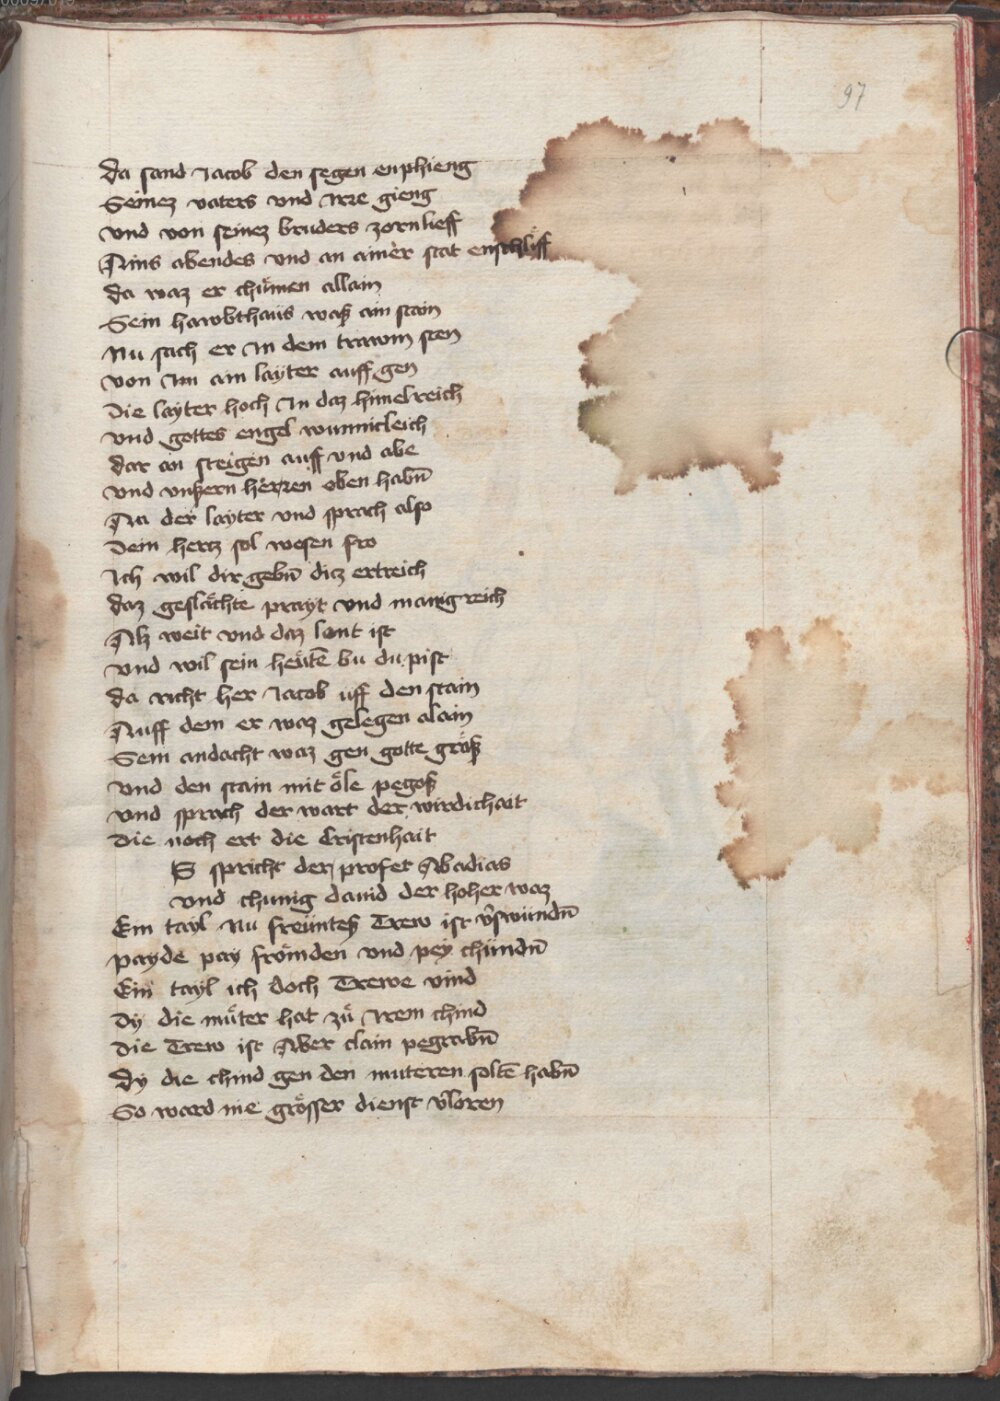 97
da sand Jacob den segen enphieng
Seinez vaters vnd Irre gieng
vnd von seinez bruders zorn lieff
Ains abendes vnd an ainer stat enschlieff
da waz er chumen allain
Sein hawbthaus waß ain stain
Nu sach er In dem trawm sten
von Im ain layter auff gen
Die layter hoch In daz himelreich
vnd gottes engel wunnicleich
dar an steigen auff vnd abe
vnd vnßern herren oben habn̄
An der layter vnd sprach also
Dein hertz sol wesen fro
Ich wil dir gebn̄ ditz ertreich
daz geslächte prayt vnd manigreich
Alz weit vnd daz lant ist
vnd wil sein heütē bu du pist
da richt her Jacob uff den stain
Auff dem er waz gelegen alain
Sein andacht waz gen gotte größ
vnd den stain mit öle pegoß
vnd sprach der wart der wirdichait
die noch ert die Cristenhait
S spricht der profet Abadias
vnd chunig dauid der hoher waz
Ein tayl Nu freüntes Trew ist v̄swundn̄
payde pay frömden vnd pey chundn̄
Ein tayl ich doch Trewe vind
Dy die muter hat zu Irem chind
Die Trew ist Aber clain pegrabn̄
Dy die chind gen den muteren soltē habn̄
So ward nie grösser dienst v̄loren